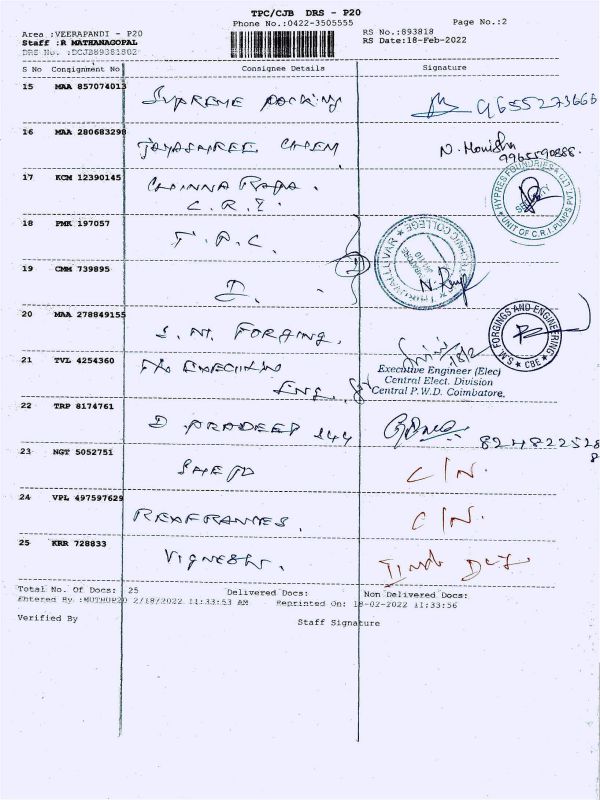 TPC/CJB DRS - P20
Phone No.:0422-3505555
Page No.:2
Area :VEERAPANDI - P20
Staff :R MATHANAGOPAL
DRS No. :DCJB89381802
RS No.:893818
RS Date:18-Feb-2022
S No Consignment No Consignee Details Signature
15 MAA 857074013 SUPREME PACKING 9655273666
16 MAA 280683298 JAYASHREE CHEM N. Monisha
9965590888.
17 KCM 12390145 CHINNA
C.R.I.
HYPRES FOUNDRIES
PVT LTD
UNIT OF C.R.I PUMPS
SECURITY
18 PMK 197057 T.P.C.
THIRUVALLUVAR
COLLEGE
19 CMM 739895
20 MAA 278849155 S.M. FORGING.
S.M. FORGINGS AND ENGINEERING
CBE
18/2
21 TVL 4254360 EXECUTIVE
ENG.
Executive Engineer (Elec)
Central Elect. Division
Central P.W.D. Coimbatore.
22 TRP 8174761 D PRADEEP 144
23 NGT 5052751 C/N.
24 VPL 497597629 C/N.
25 KRR 728833 VIGNESH.
Total No. Of Docs: 25 Delivered Docs: Non Delivered Docs:
Entered By :MUTHUP20 2/18/2022 11:33:53 AM Reprinted On: 18-02-2022 11:33:56
Verified By Staff Signature